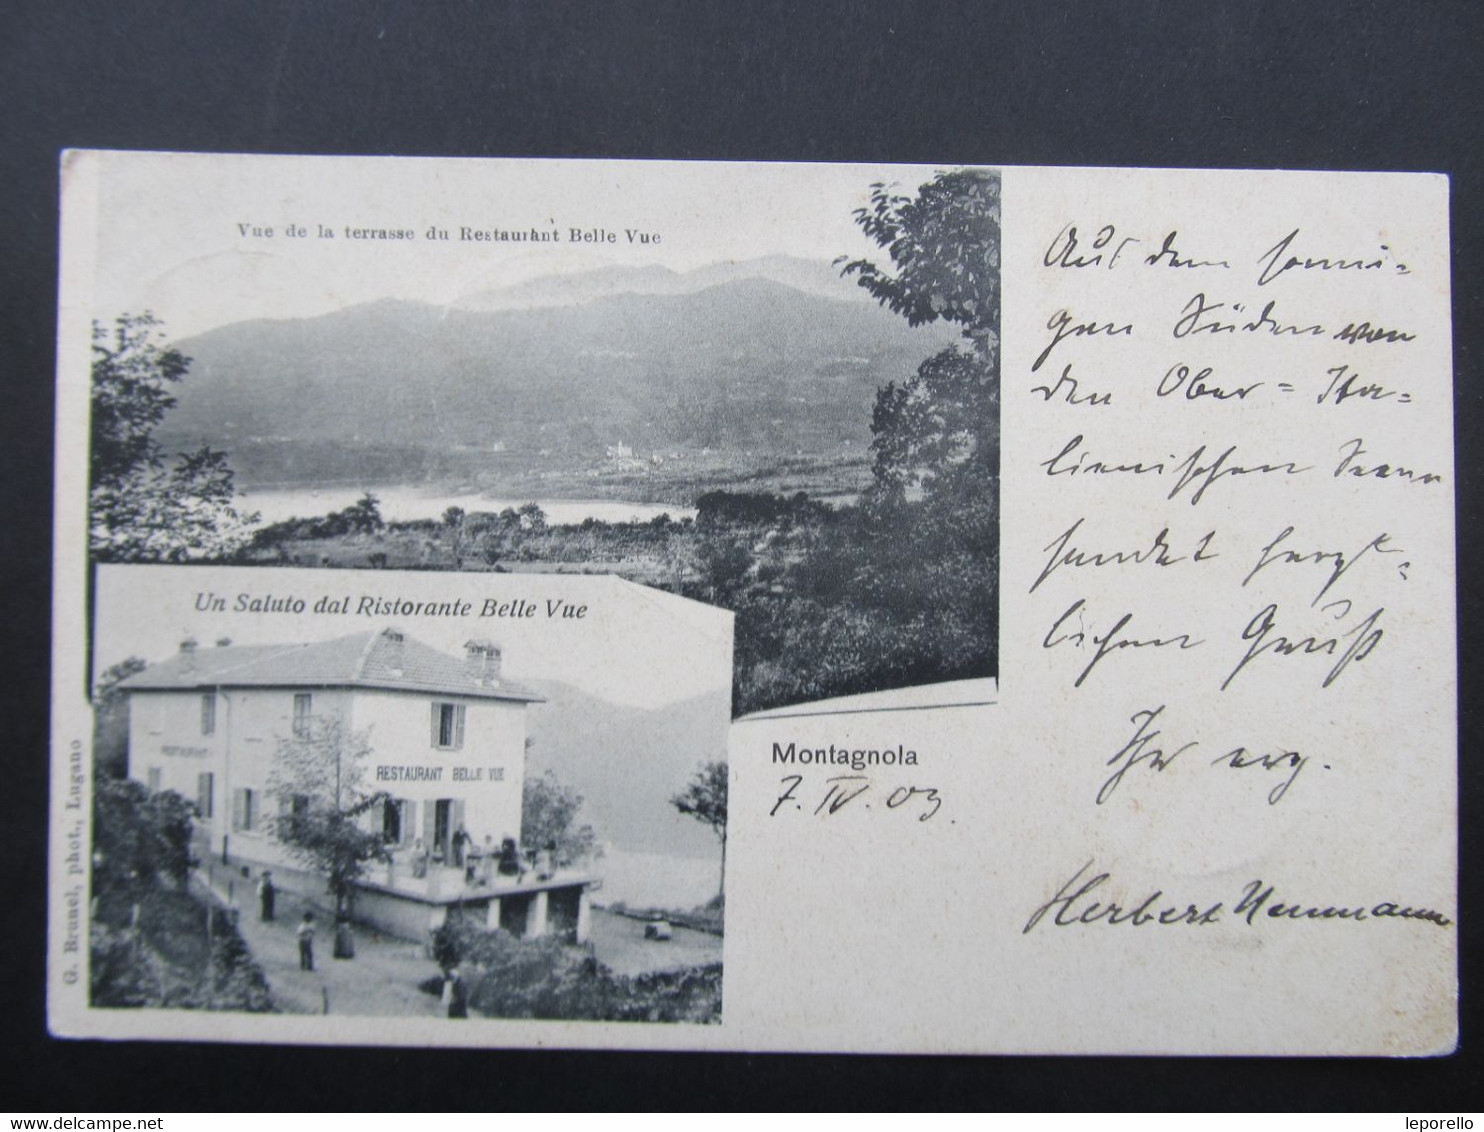 Vue de la terrasse du Restaurant Belle Vue
Un Saluto dal Ristorante Belle Vue
RESTAURANT
RESTAURANT BELLE VUE
G. Brunel, phot., Lugano
Montagnola
7. IV. 03.
Aus dem sonni-
gen Süden von
den Ober=Ita=
lienischen Seeen
sendet herz-
lichen Gruß
Ihr erg.
Herbert Neumann
leporello